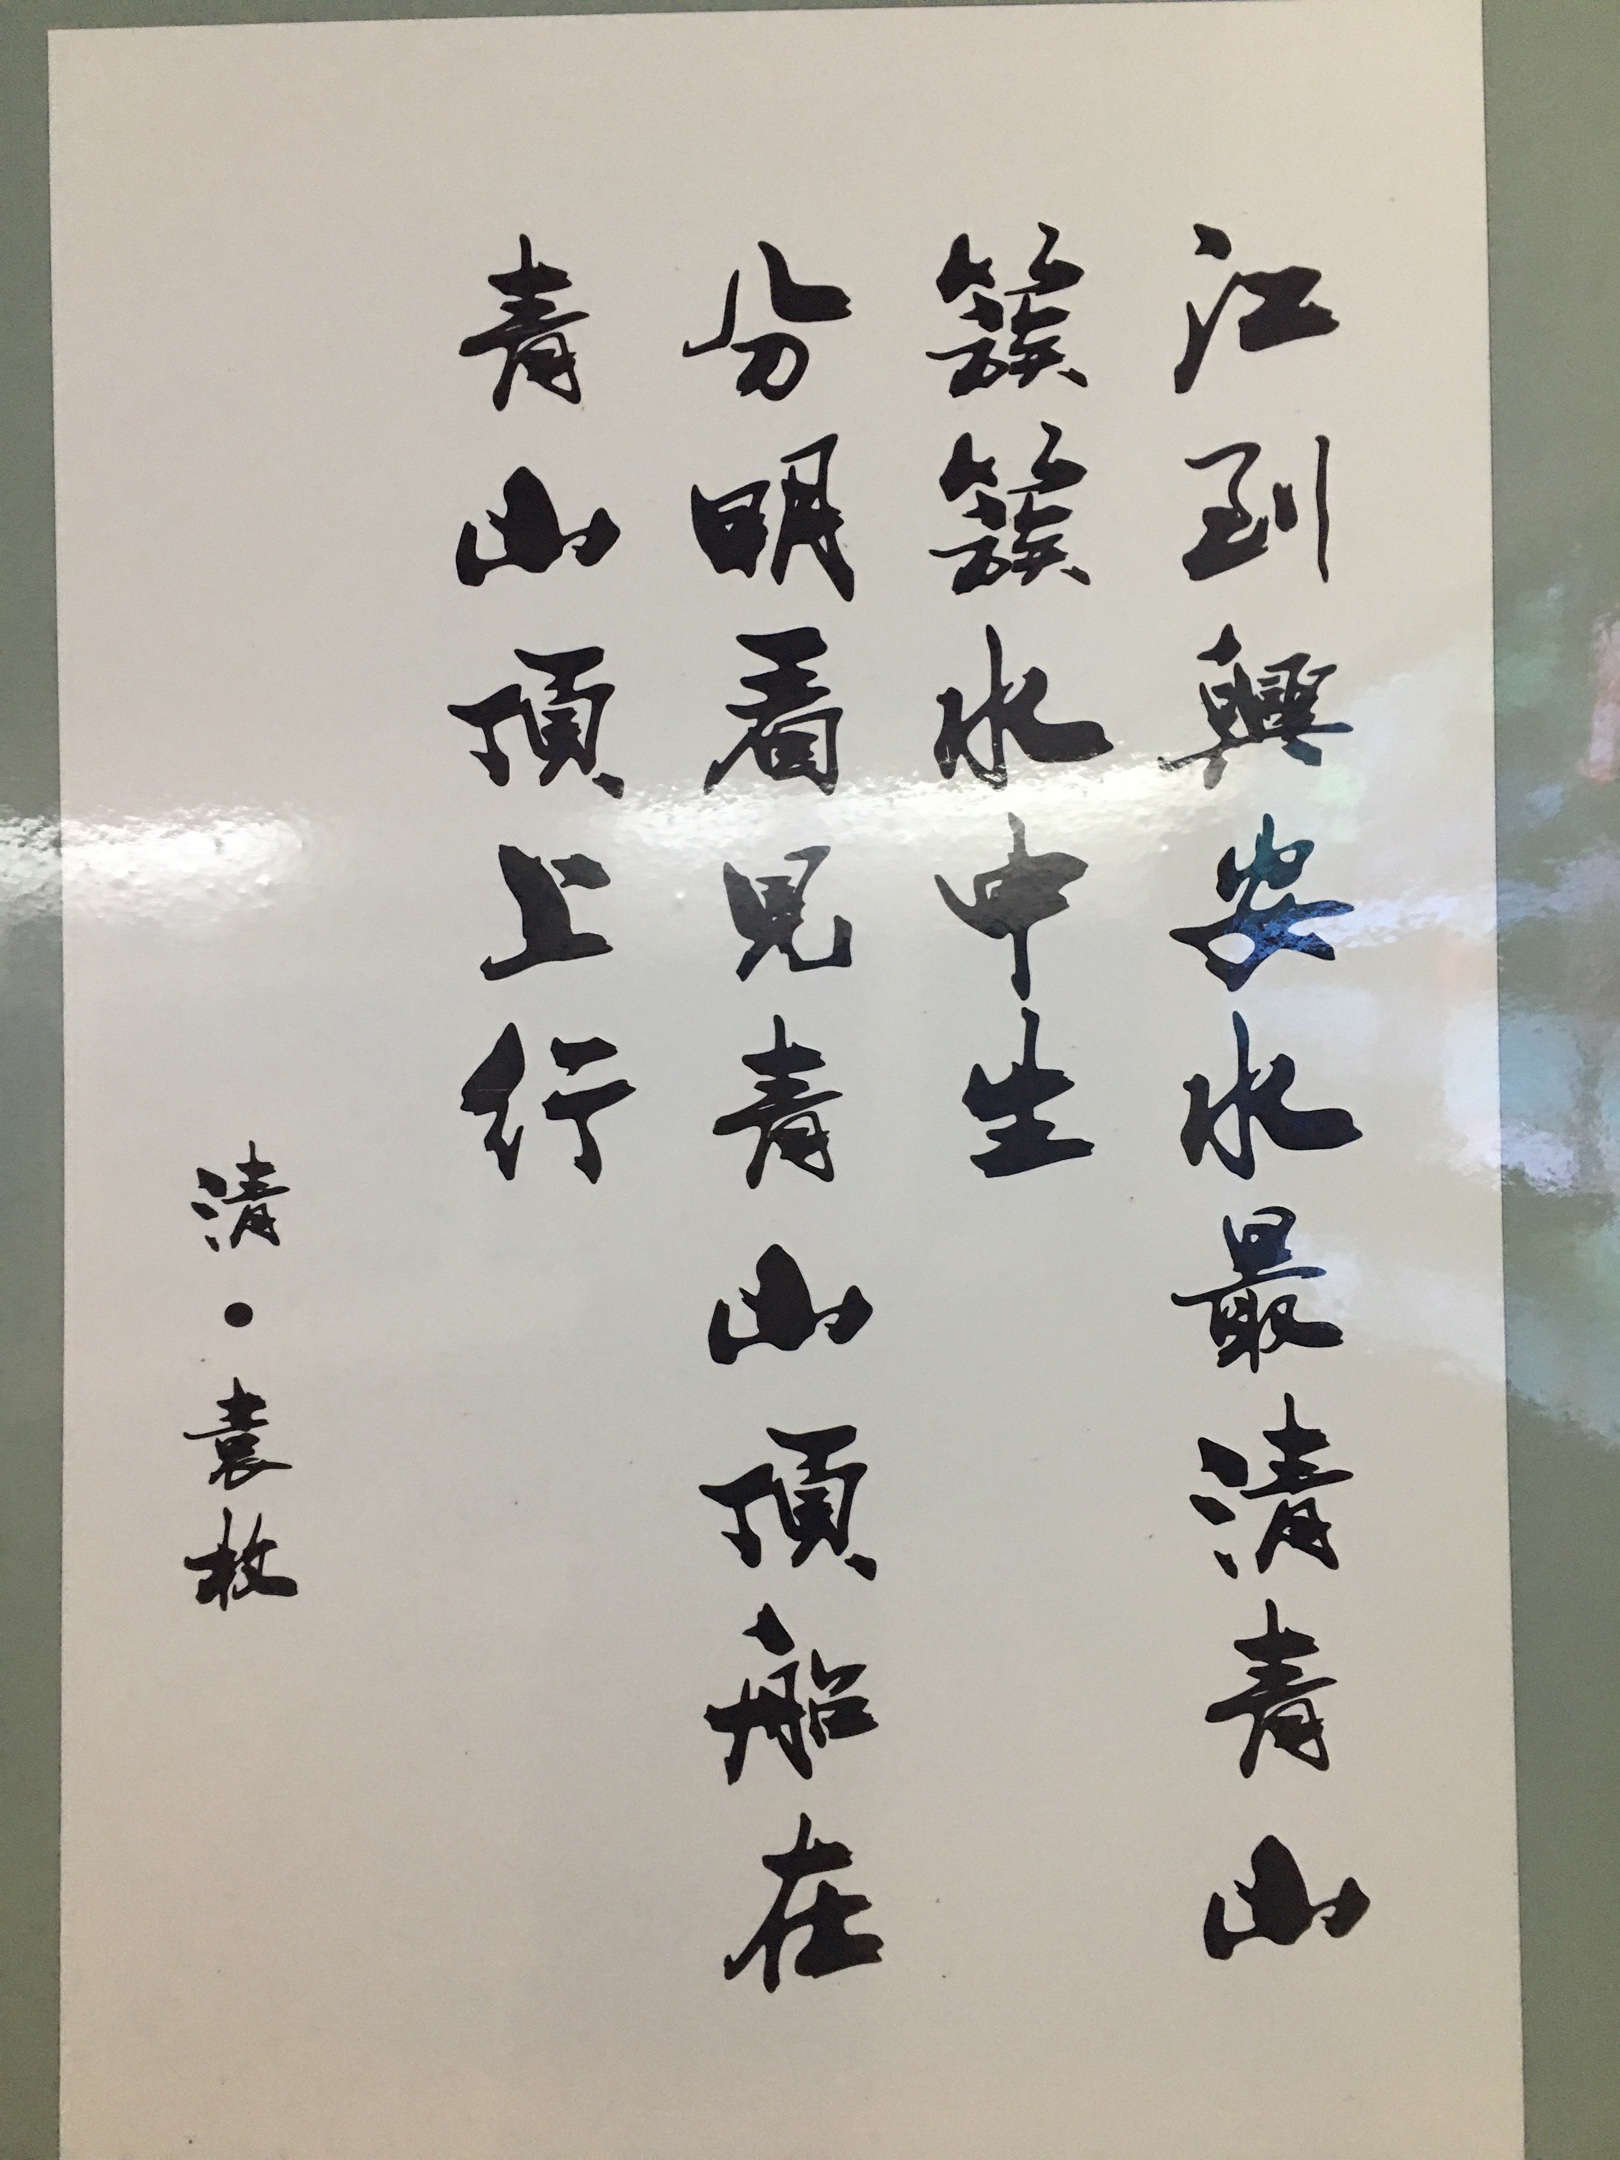 江到興安水最清青山
簇簇水中生
分明看見青山頂船在
青山頂上行
清·袁枚